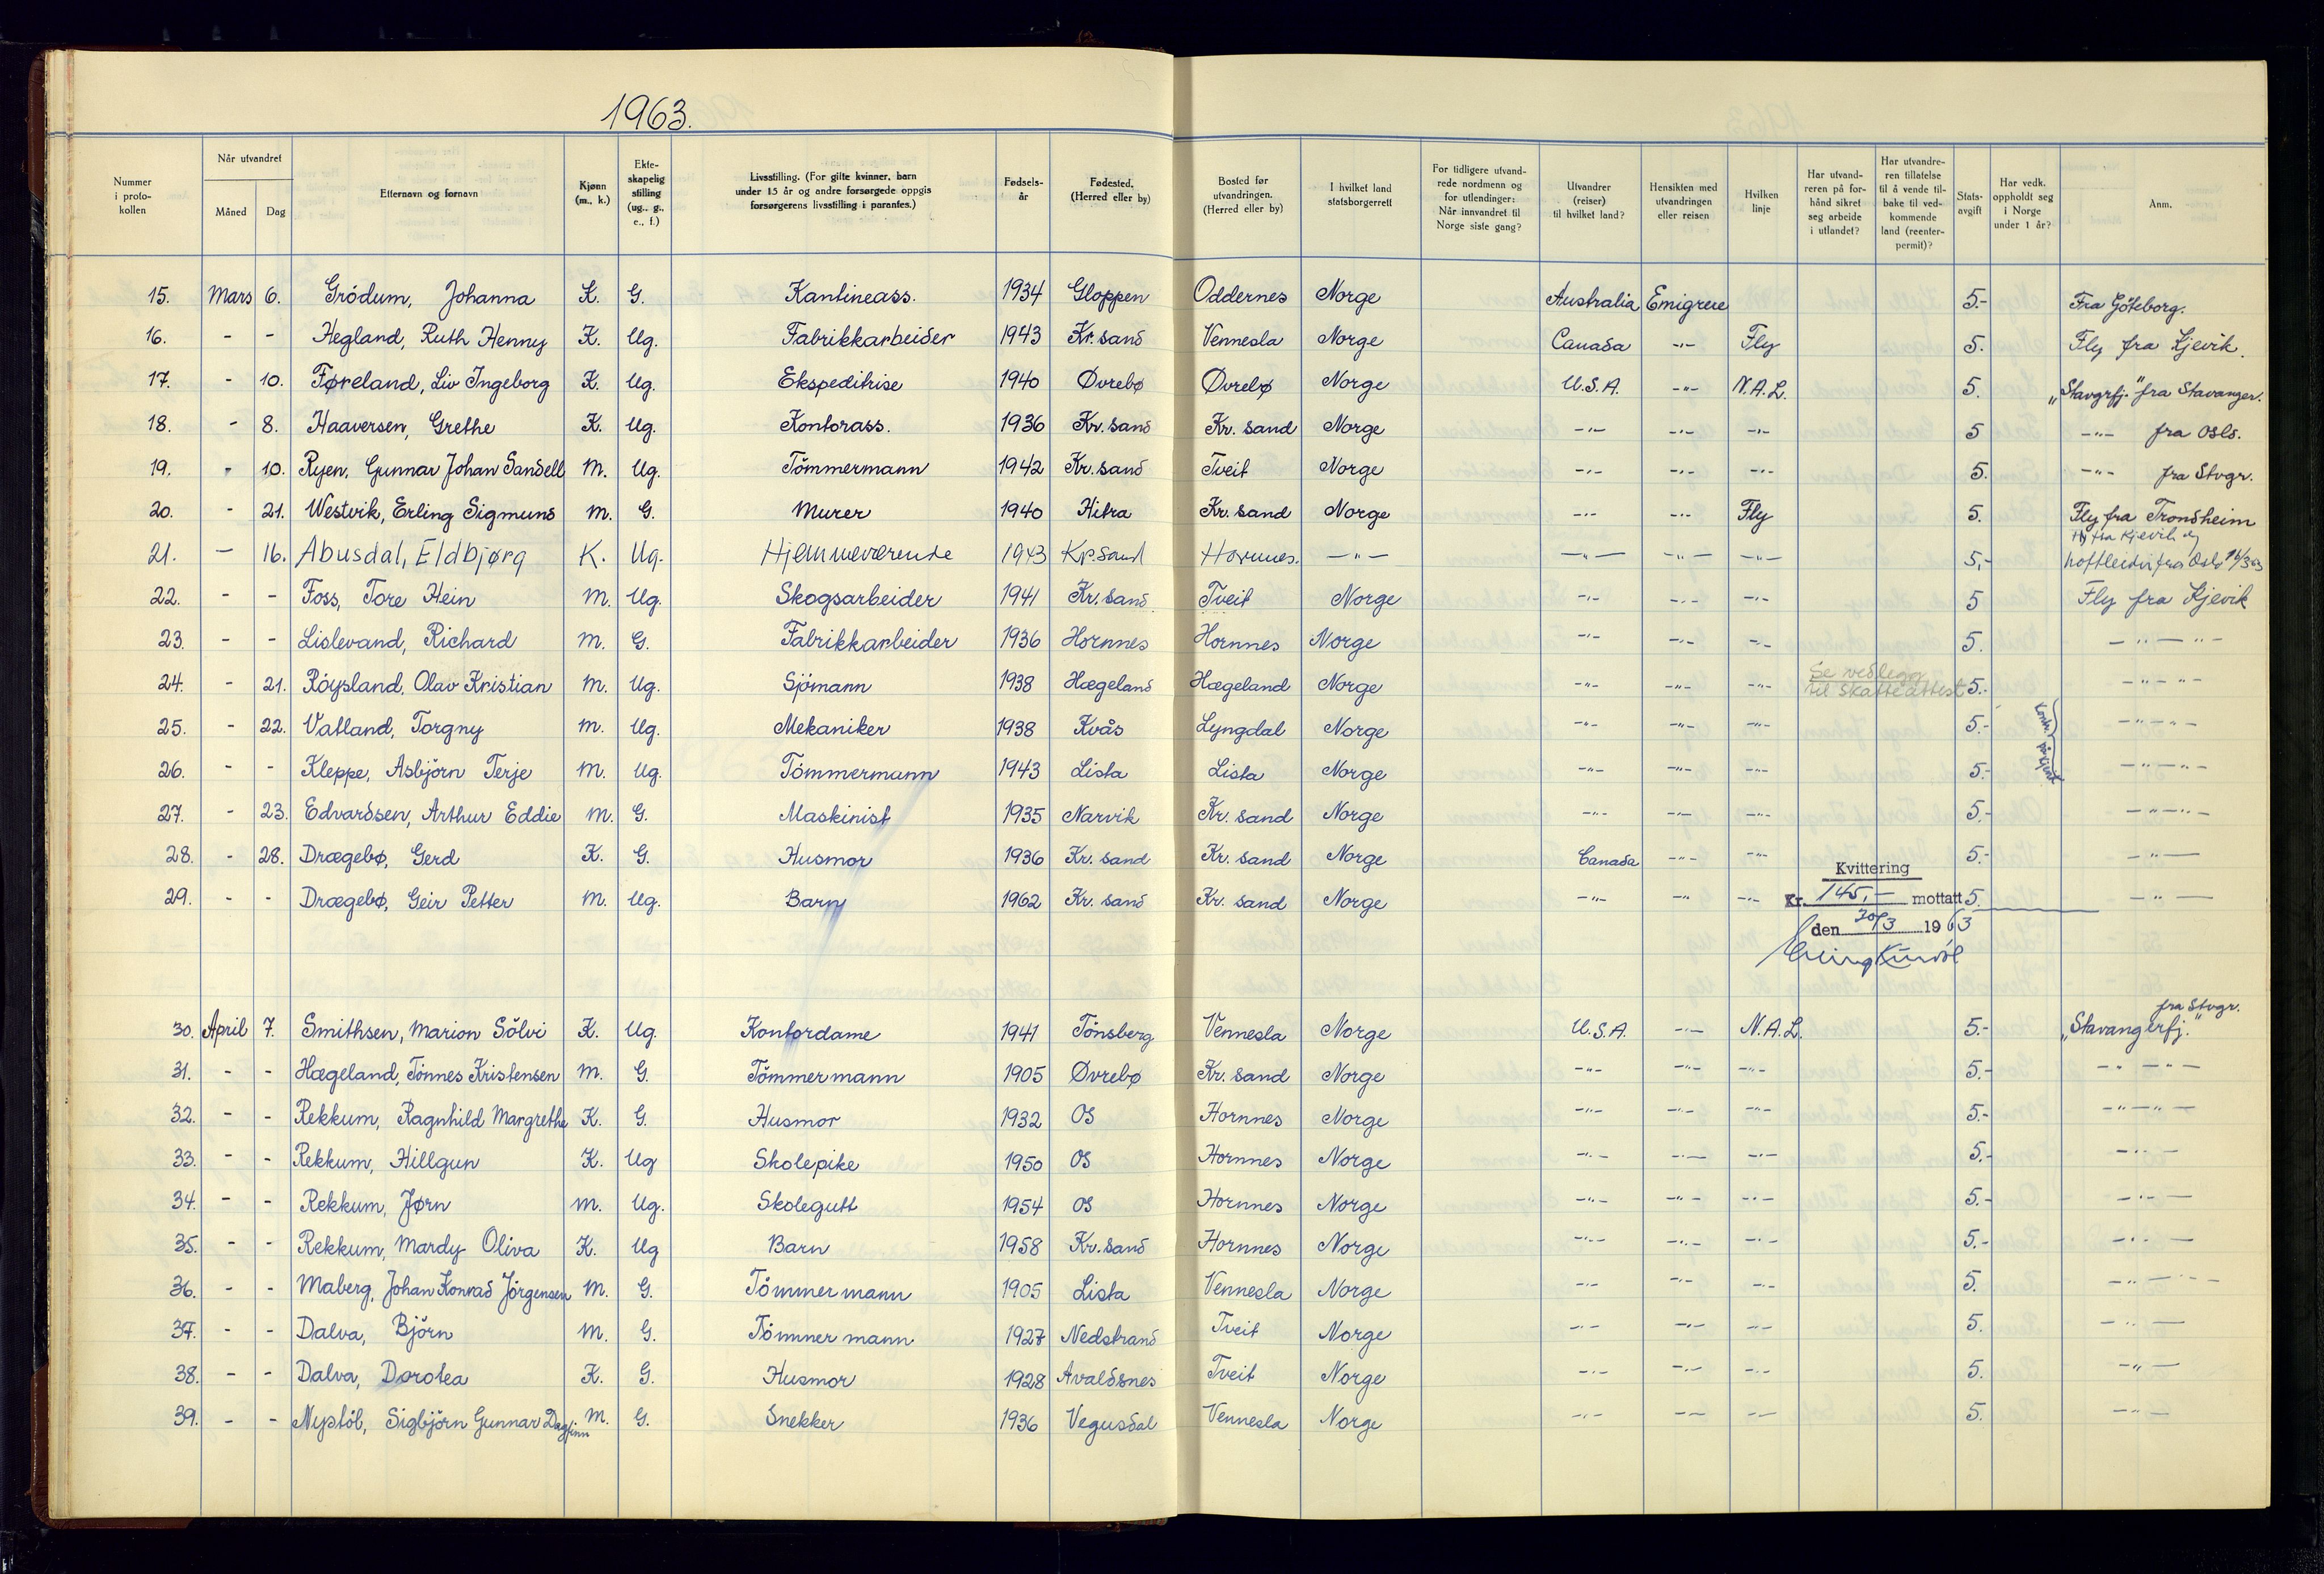 1963.
Nummer i proto- kollen | Når utvandret Måned Dag | Etternavn og fornavn | Kjønn (m., k.) | Ekte- skapelig stilling (ug., g., e., f.) | Livsstilling. (For gifte kvinner, barn under 15 år og andre forsørgede oppgis forsørgerens livsstilling i parantes.) | Fødsels- år | Fødested. (Herred eller by) | Bosted før utvandringen. (Herred eller by) | I hvilket land statsborgerrett | For tidligere utvand- rede nordmenn og for utlendinger: Når innvandret til Norge siste gang? | Utvandrer (reiser) til hvilket land? | Hensikten med utvandringen eller reisen | Hvilken linje | Har utvand- reren på for- hånd sikret seg arbeide i utlandet? | Har utvandre- ren tillatelse til å vende til- bake til ved- kommende land (reenter- permit)? | Stats- avgift | Har vedk. oppholdt seg i Norge under 1 år? | Anm.
15. Mars 6. Grödum, Johanna K. G. Kantineass. 1934 Gloppen Oddernes Norge Australia Emigrere 5.- Fra Göteborg.
16. - - Hegland, Ruth Henny K. Ug. Fabrikkarbeider 1943 Kr.sand Vennesla Norge Canada -"- Fly 5. Fly fra Kjevik.
17. - 10. Føreland, Liv Ingeborg K. Ug. Ekspeditrise 1940 Øvrebø Øvrebø Norge U.S.A. -"- N.A.L. 5. „Stavgrfj." fra Stavanger.
18. - 8. Haaversen, Grethe K. Ug. Kontorass. 1936 Kr.sand Kr. sand Norge -"- -"- -"- 5 -"- fra Oslo.
19. - 10. Ryen, Gunnar Johan Sandell M. Ug. Tömmermann 1942 Kr.sand Tveit Norge -"- -"- -"- 5. -"- fra Stvgr.
20. - 21. Westvik, Erling Sigmund M. G. Murer 1940 Hitra Kr. sand Norge -"- -"- Fly 5. Fly fra Trondheim
21. - 16. Abusdal, Eldbjørg K. Ug. Hjemmeværende 1943 Kr.sand Hornnes. -"- -"- -"- -"- 5,- Fly fra Kjevik og
Loftleidir fra Oslo 16/3 63
22. - - Foss, Tore Hein M. Ug. Skogsarbeider 1941 Kr.sand Tveit Norge -"- -"- -"- 5 Fly fra Kjevik
23. - - Lislevand, Richard M. G. Fabrikkarbeider 1936 Hornnes Hornnes Norge -"- -"- -"- 5. -"- -"-
24. - 21. Röysland, Olav Kristian M. Ug. Sjömann 1938 Hægeland Hægeland Norge -"- -"- -"- Se vedlegg til skatteattest 5.- -"- -"-
25. - 22. Vatland, Torgny M. Ug. Mekaniker 1938 Kvås Lyngdal Norge -"- -"- -"- 5.- -"- -"-
26. - - Kleppe, Asbjörn Terje M. Ug. Tömmermann 1943 Lista Lista Norge -"- -"- -"- 5.- -"- -"-
27. - 23. Edvardsen, Arthur Eddie M. G. Maskinist 1935 Narvik Kr. sand Norge -"- -"- -"- 5.- -"- -"-
28. - 28. Drægebø, Gerd K. G. Husmor 1936 Kr. sand Kr. sand Norge Canada -"- -"- 5.- -"-
29. - - Drægebø, Geir Petter M. Ug. Barn 1962 Kr. sand Kr. sand Norge -"- -"- -"- 5. -"-
Kvittering
Kr. 145,- mottatt
den 30/3 1963
30. April 7. Smithsen, Marion Sölvi K. Ug. Kontordame 1941 Tönsberg Vennesla Norge U.S.A. -"- N.A.L. 5.- „Stavangerfj." fra Stvgr.
31. - - Hægeland, Tönnes Kristensen M. G. Tömmermann 1905 Øvrebø Kr. sand Norge -"- -"- -"- 5.- -"- -"-
32. - - Rekkum, Ragnhild Margrethe K. G. Husmor 1932 Os Hornnes Norge -"- -"- -"- 5.- -"- -"-
33. - - Rekkum, Hillgun K. Ug Skolepike 1950 Os Hornnes Norge -"- -"- -"- 5.- -"-
34. - - Rekkum, Jørn M. Ug. Skolegutt 1954 Os Hornnes Norge -"- -"- -"- 5.- -"-
35. - - Rekkum, Mardy Oliva K. Ug Barn 1958 Kr.sand Hornnes Norge -"- -"- -"- 5.- -"-
36. - - Maberg, Johan Konrad Jörgensen M. G. Tömmermann 1905 Lista Vennesla Norge -"- -"- -"- 5. -"- -"-
37. - - Dalva, Björn M. G. Tömmermann 1927 Nedstrand Tveit Norge -"- -"- -"- 5. -"-
38. - - Dalva, Dorotea K. G. Husmor 1928 Avaldsnes Tveit Norge -"- -"- -"- 5. -"-
39. - - Nystöl, Sigbjörn Gunnar Dagfinn M. G. Snekker 1936 Vegusdal Vennesla Norge -"- -"- -"- 5. -"-